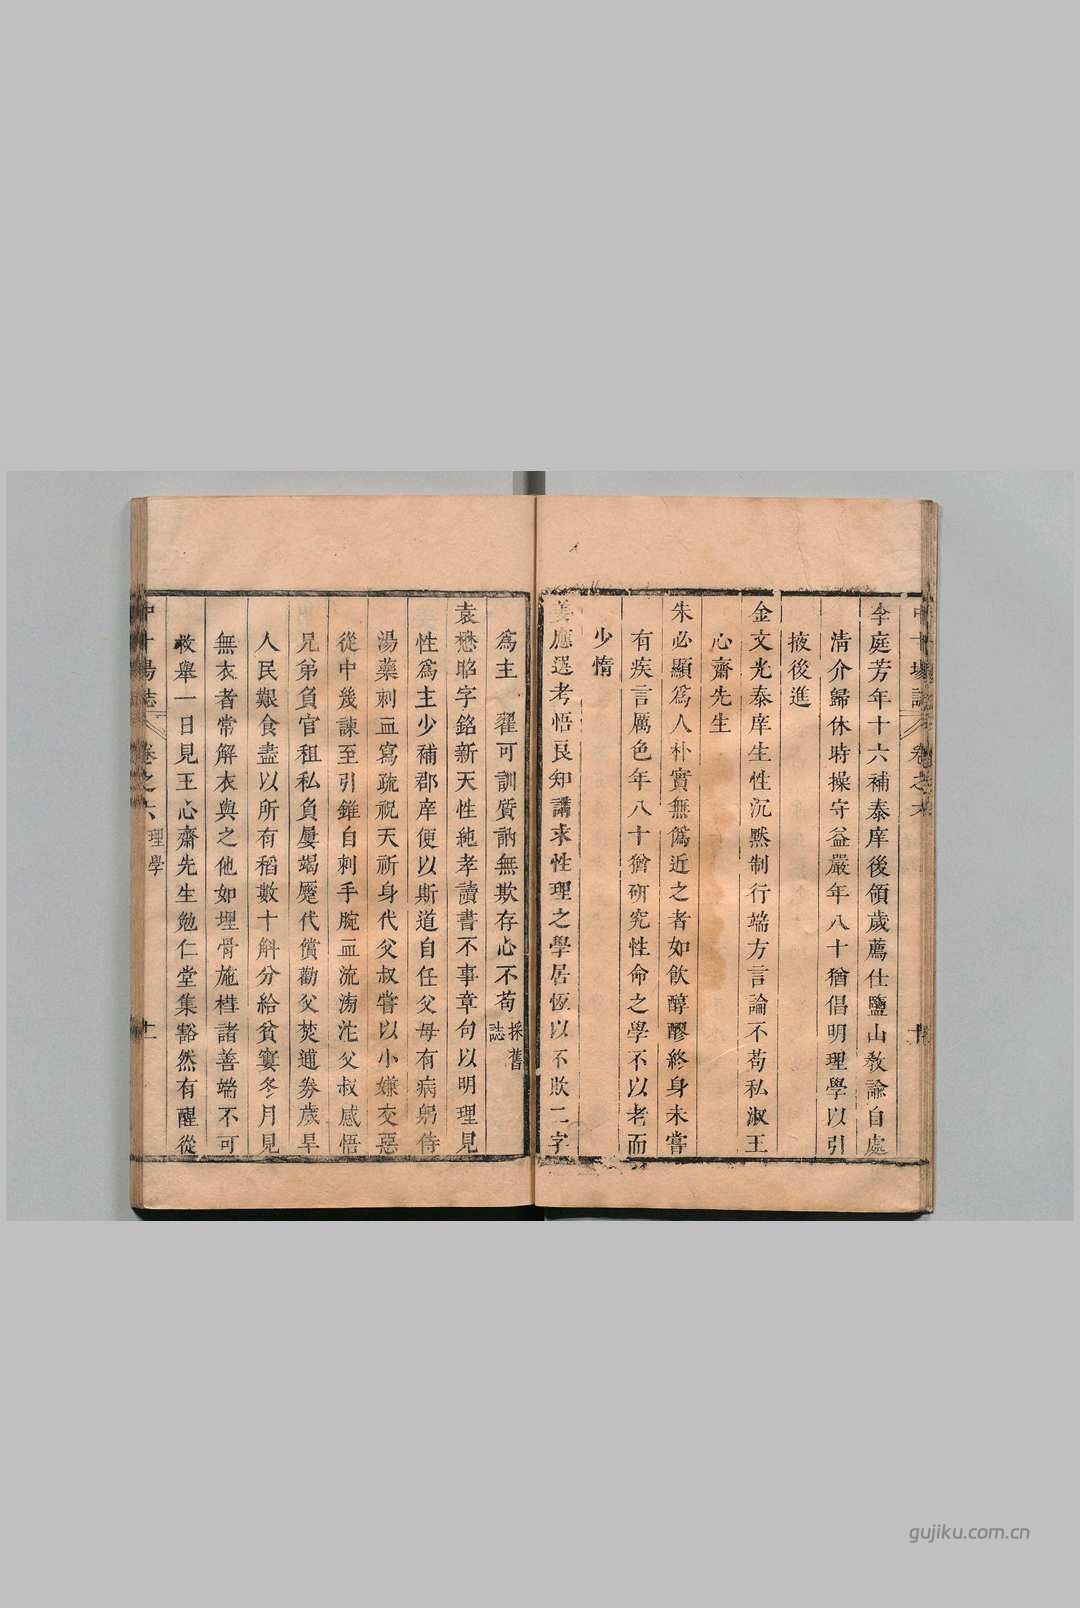 中十場誌 卷之六 十
李庭芳年十六補泰庠後領歲薦仕鹽山敎諭自處
清介歸休時操守益嚴年八十猶倡明理學以引
掖後進
金文光泰庠生性沉黙制行端方言論不苟私淑王
心齋先生
朱必顯爲人朴實無僞近之者如飲醇醪終身未嘗
有疾言厲色年八十猶硏究性命之學不以老而
少惰
姜應選考悟良知講求性理之學居恆以不欺二字
爲主 翟可訓質訥無欺存心不苟採舊誌
袁懋昭字銘新天性純孝讀書不事章句以明理見
性爲主少補郡庠便以斯道自任父母有病躬侍
湯藥刺血寫疏祝天祈身代父叔嘗以小嫌交惡
從中幾諫至引錐自刺手腕血流滂沱父叔感悟
兄弟負官租私負屢竭蹷代償勸父焚逋券歲旱
人民艱食盡以所有稻數十斛分給貧窶冬月見
無衣者常解衣與之他如埋骨施槥諸善端不可
枚舉一日見王心齋先生勉仁堂集豁然有醒從
中十場誌 卷之六 理學 十一
gujiku.com.cn